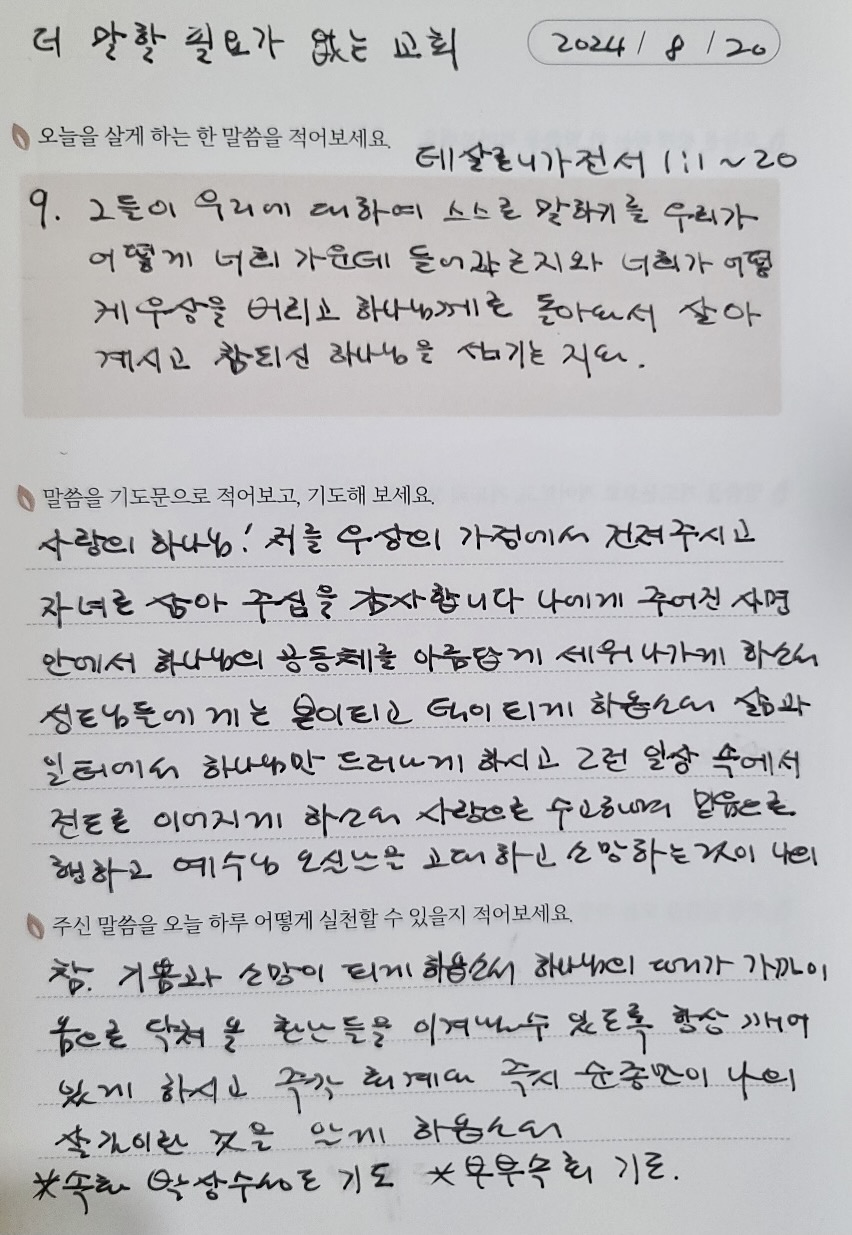 더 말할 필요가 없는 교회
2024 / 8 / 20
오늘을 살게 하는 한 말씀을 적어보세요.
데살로니가전서 1:1 ~ 20
9. 그들이 우리에 대하여 스스로 말하기를 우리가
어떻게 너희 가운데 들어갔는지와 너희가 어떻
게 우상을 버리고 하나님께로 돌아와서 살아
계시고 참되신 하나님을 섬기는 지와.
말씀을 기도문으로 적어보고, 기도해 보세요.
사랑의 하나님! 저를 우상의 가정에서 건져주시고
자녀로 삼아 주심을 감사합니다 나에게 주어진 사명
안에서 하나님의 공동체를 아름답게 세워나가게 하소서
성도님들에게는 본이되고 덕이 되게 하옵소서 삶과
일터에서 하나님만 드러나게 하시고 그런 일상 속에서
전도로 이어지게 하소서 사랑으로 수고하며 믿음으로
행하고 예수님 오신날은 고대하고 소망하는것이 나의
주신 말씀을 오늘 하루 어떻게 실천할 수 있을지 적어보세요.
참. 기쁨과 소망이 되게 하옵소서 하나님의 때가 가까이
옴으로 닥쳐 올 환난들을 이겨낼수 있도록 항상 깨어
있게 하시고 즉각 회개와 즉시 순종만이 나의
살길이란 것을 알게 하옵소서
*속회 박상수성도 기도 *부부속회 기도.